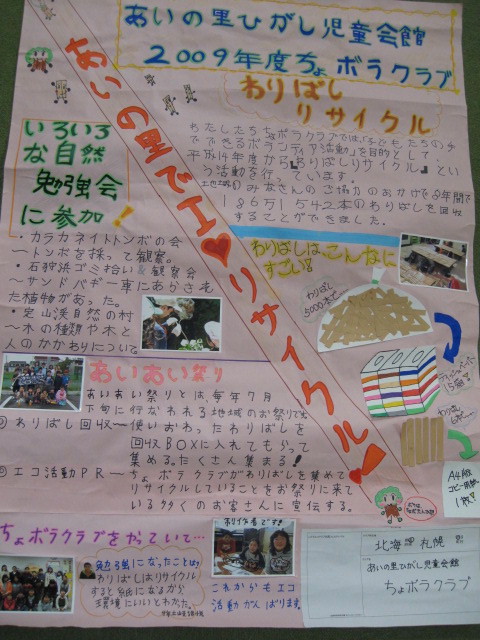 あいの里ひがし児童会館
2009年度ちょボラクラブ
あいの里でエ♥リサイクル!
わりばし
リサイクル
わたしたちちょボラクラブでは、「子どもたちの手
でできるボランティア活動」を目的として
平成14年度から『わりばしリサイクル』とい
う活動を行っています。
地域のみなさんのご協力のおかげで8年間で
18651542本のわりばしを回収
することができました。
いろいろ
な自然
勉強会
に参加!
・カラカネイトトンボの会
〜トンボを採って観察。
・石狩浜ゴミ拾い&観察会
〜サンドバギー車にあらされ
た植物があった。
・定山渓自然の村
〜木の種類や木と
人のかかわりについて。
わりばしは、こんなに
すごい!
わりばし
5000本で…
ティッシュペーパー
わりばし
A4版
コピー用紙
1枚!
あいあい祭り
あいあい祭りとは、毎年7月
下旬に行なわれる地域のお祭りです
①わりばし回収〜使いおわったわりばしを
回収BOXに入れてもらって
集める。たくさん集まる!
②エコ活動PR〜ちょボラクラブがわりばしを集めて
リサイクルしていることをお祭りに来て
いる多くのお客さんに宣伝する。
ちょボラクラブをやっていて…
勉強になったことは、
わりばしはリサイクル
すると紙になるから
環境にいいとわかった。
制作者です!
これからもエコ
活動がんばります。
北海道 札幌
あいの里ひがし児童会館
ちょボラクラブ